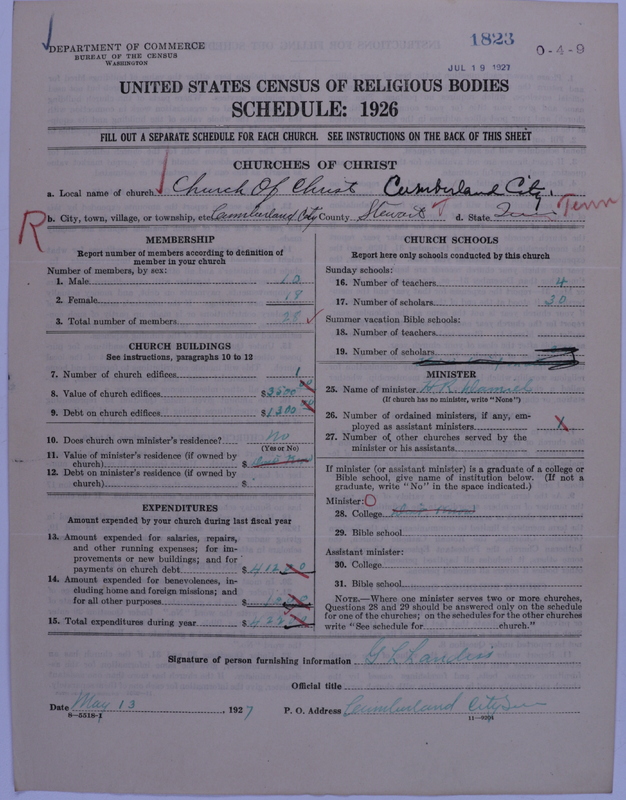 1823
DEPARTMENT OF COMMERCE
BUREAU OF THE CENSUS
WASHINGTON
0-4-9
JUL 19 1927
UNITED STATES CENSUS OF RELIGIOUS BODIES
SCHEDULE: 1926
FILL OUT A SEPARATE SCHEDULE FOR EACH CHURCH. SEE INSTRUCTIONS ON THE BACK OF THIS SHEET
CHURCHES OF CHRIST
a. Local name of church Church Of Christ Cumberland City.
R b. City, town, village, or township, etc. Cumberland City County Stewart T d. State Tenn
MEMBERSHIP
Report number of members according to definition of
member in your church
Number of members, by sex:
1. Male 10
2. Female 18
3. Total number of members 28
CHURCH BUILDINGS
See instructions, paragraphs 10 to 12
7. Number of church edifices 1
8. Value of church edifices $3500
9. Debt on church edifices $1300
10. Does church own minister's residence? No
(Yes or No)
11. Value of minister's residence (if owned by
church) $
12. Debt on minister's residence (if owned by
church) $
EXPENDITURES
Amount expended by your church during last fiscal year
13. Amount expended for salaries, repairs,
and other running expenses; for im-
provements or new buildings; and for
payments on church debt $412
14. Amount expended for benevolences, in-
cluding home and foreign missions; and
for all other purposes $
15. Total expenditures during year $422
CHURCH SCHOOLS
Report here only schools conducted by this church
Sunday schools:
16. Number of teachers 4
17. Number of scholars 30
Summer vacation Bible schools:
18. Number of teachers
19. Number of scholars
MINISTER
25. Name of minister
(If church has no minister, write "None")
26. Number of ordained ministers, if any, em-
ployed as assistant ministers X
27. Number of other churches served by the
minister or his assistants
If minister (or assistant minister) is a graduate of a college or
Bible school, give name of institution below. (If not a
graduate, write "No" in the space indicated.)
Minister:
28. College
29. Bible school
Assistant minister:
30. College
31. Bible school
NOTE.—Where one minister serves two or more churches,
Questions 28 and 29 should be answered only on the schedule
for one of the churches; on the schedules for the other churches
write "See schedule for church."
Signature of person furnishing information G L
Official title
Date May 13, 1927 P. O. Address Cumberland City
8-5518-1